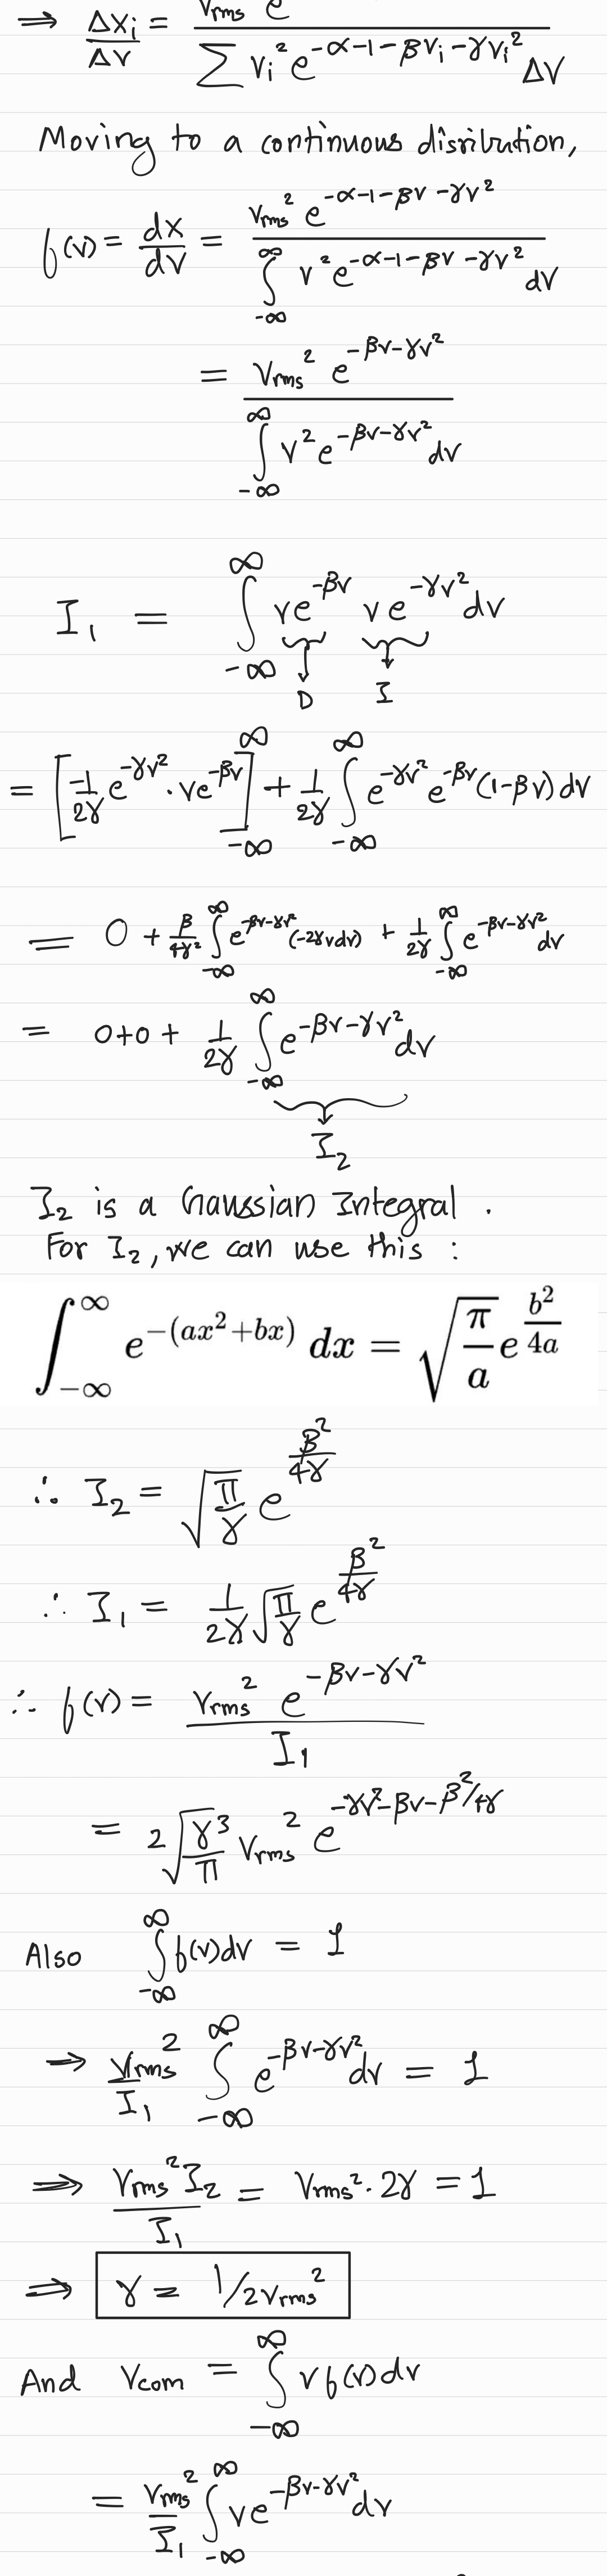 ⇒ Δxᵢ/ΔV = Vrms e / ∑ Vᵢ² e^(-α-1-βVᵢ-γVᵢ²) ΔV
Moving to a continuous disribution,
f(v) = dx/dV = Vrms² e^(-α-1-βV-γV²) / ∫_{-∞}^{∞} V² e^(-α-1-βV-γV²) dV
= Vrms² e^(-βV-γV²) / ∫_{-∞}^{∞} V² e^(-βV-γV²) dV
I₁ = ∫_{-∞}^{∞} Ve^(-βV) Ve^(-γV²) dV
D I
= [-1/2γ e^(-γV²) · Ve^(-βV)]_{-∞}^{∞} + 1/2γ ∫_{-∞}^{∞} e^(-γV²) e^(-βV) (1-βV) dV
= 0 + β/4γ² ∫_{-∞}^{∞} e^(-βV-γV²) (-2γVdV) + 1/2γ ∫_{-∞}^{∞} e^(-βV-γV²) dV
= 0+0+ 1/2γ ∫_{-∞}^{∞} e^(-βV-γV²) dV
I₂
I₂ is a Gaussian Integral.
For I₂, we can use this:
∫_{-∞}^{∞} e^(-(ax²+bx)) dx = √(π/a) e^(b²/4a)
∴ I₂ = √(π/γ) e^(β²/4γ)
∴ I₁ = 1/2γ √(π/γ) e^(β²/4γ)
∴ f(v) = Vrms² e^(-βV-γV²) / I₁
= 2√(γ³/π) Vrms² e^(-γV²-βV-β²/4γ)
Also ∫_{-∞}^{∞} f(v)dv = 1
⇒ Vrms²/I₁ ∫_{-∞}^{∞} e^(-βV-γV²) dV = 1
⇒ Vrms² I₂ / I₁ = Vrms² · 2γ = 1
⇒ γ = 1/2Vrms²
And Vcom = ∫_{-∞}^{∞} V f(v) dv
= Vrms²/I₁ ∫_{-∞}^{∞} Ve^(-βV-γV²) dV